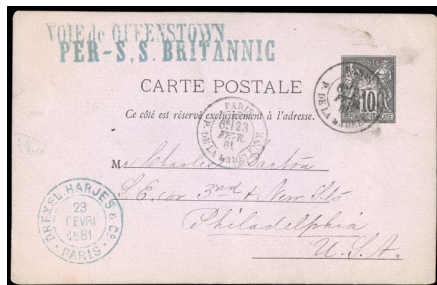 VOIE de QUEENSTOWN
PER-S,S. BRITANNIC
CARTE POSTALE
Ce côté est réservé exclusivement à l'adresse.
POSTE
10
PARIS
23
FEVR.
81
P. DE LA MADELEINE
M. Charles
S.E. cor 3rd & New Sts
Philadelphia
U.S.A.
DREXEL HARJES & Co
23
FEVRI
1881
PARIS